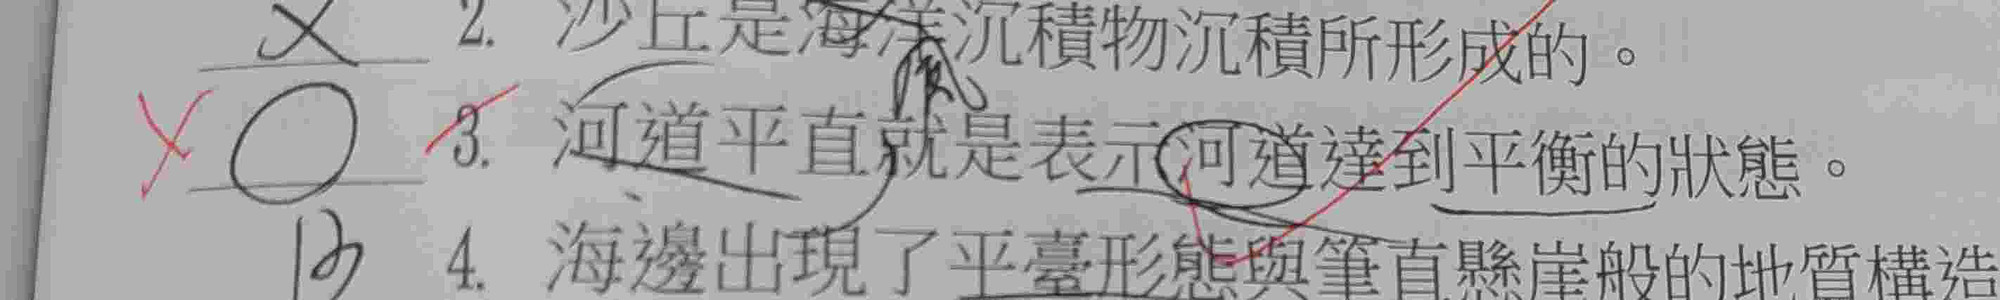 2. 沙丘是海洋沉積物沉積所形成的。
風
3. 河道平直就是表示河道達到平衡的狀態。
4. 海邊出現了平臺形態與筆直懸崖般的地質構造